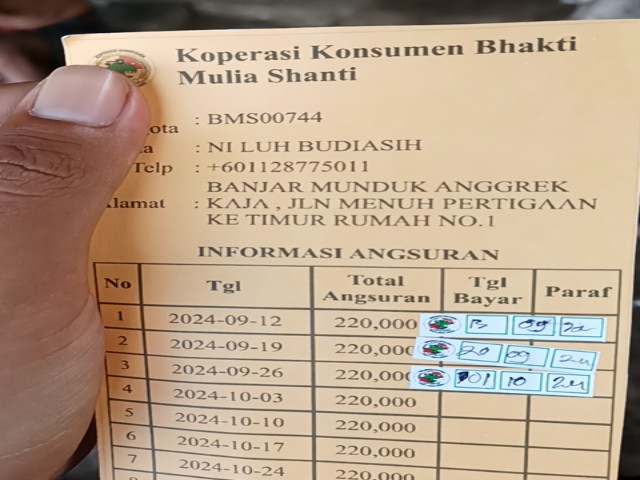 Koperasi Konsumen Bhakti
Mulia Shanti
: BMS00744
: NI LUH BUDIASIH
Telp : +601128775011
BANJAR MUNDUK ANGGREK
: KAJA , JLN MENUH PERTIGAAN
KE TIMUR RUMAH NO.1
INFORMASI ANGSURAN
No Tgl Total Angsuran Tgl Bayar Paraf
1 2024-09-12 220,000 13 09 24
2 2024-09-19 220,000 20 09 24
3 2024-09-26 220,000 01 10 24
4 2024-10-03 220,000
5 2024-10-10 220,000
6 2024-10-17 220,000
7 2024-10-24 220,000